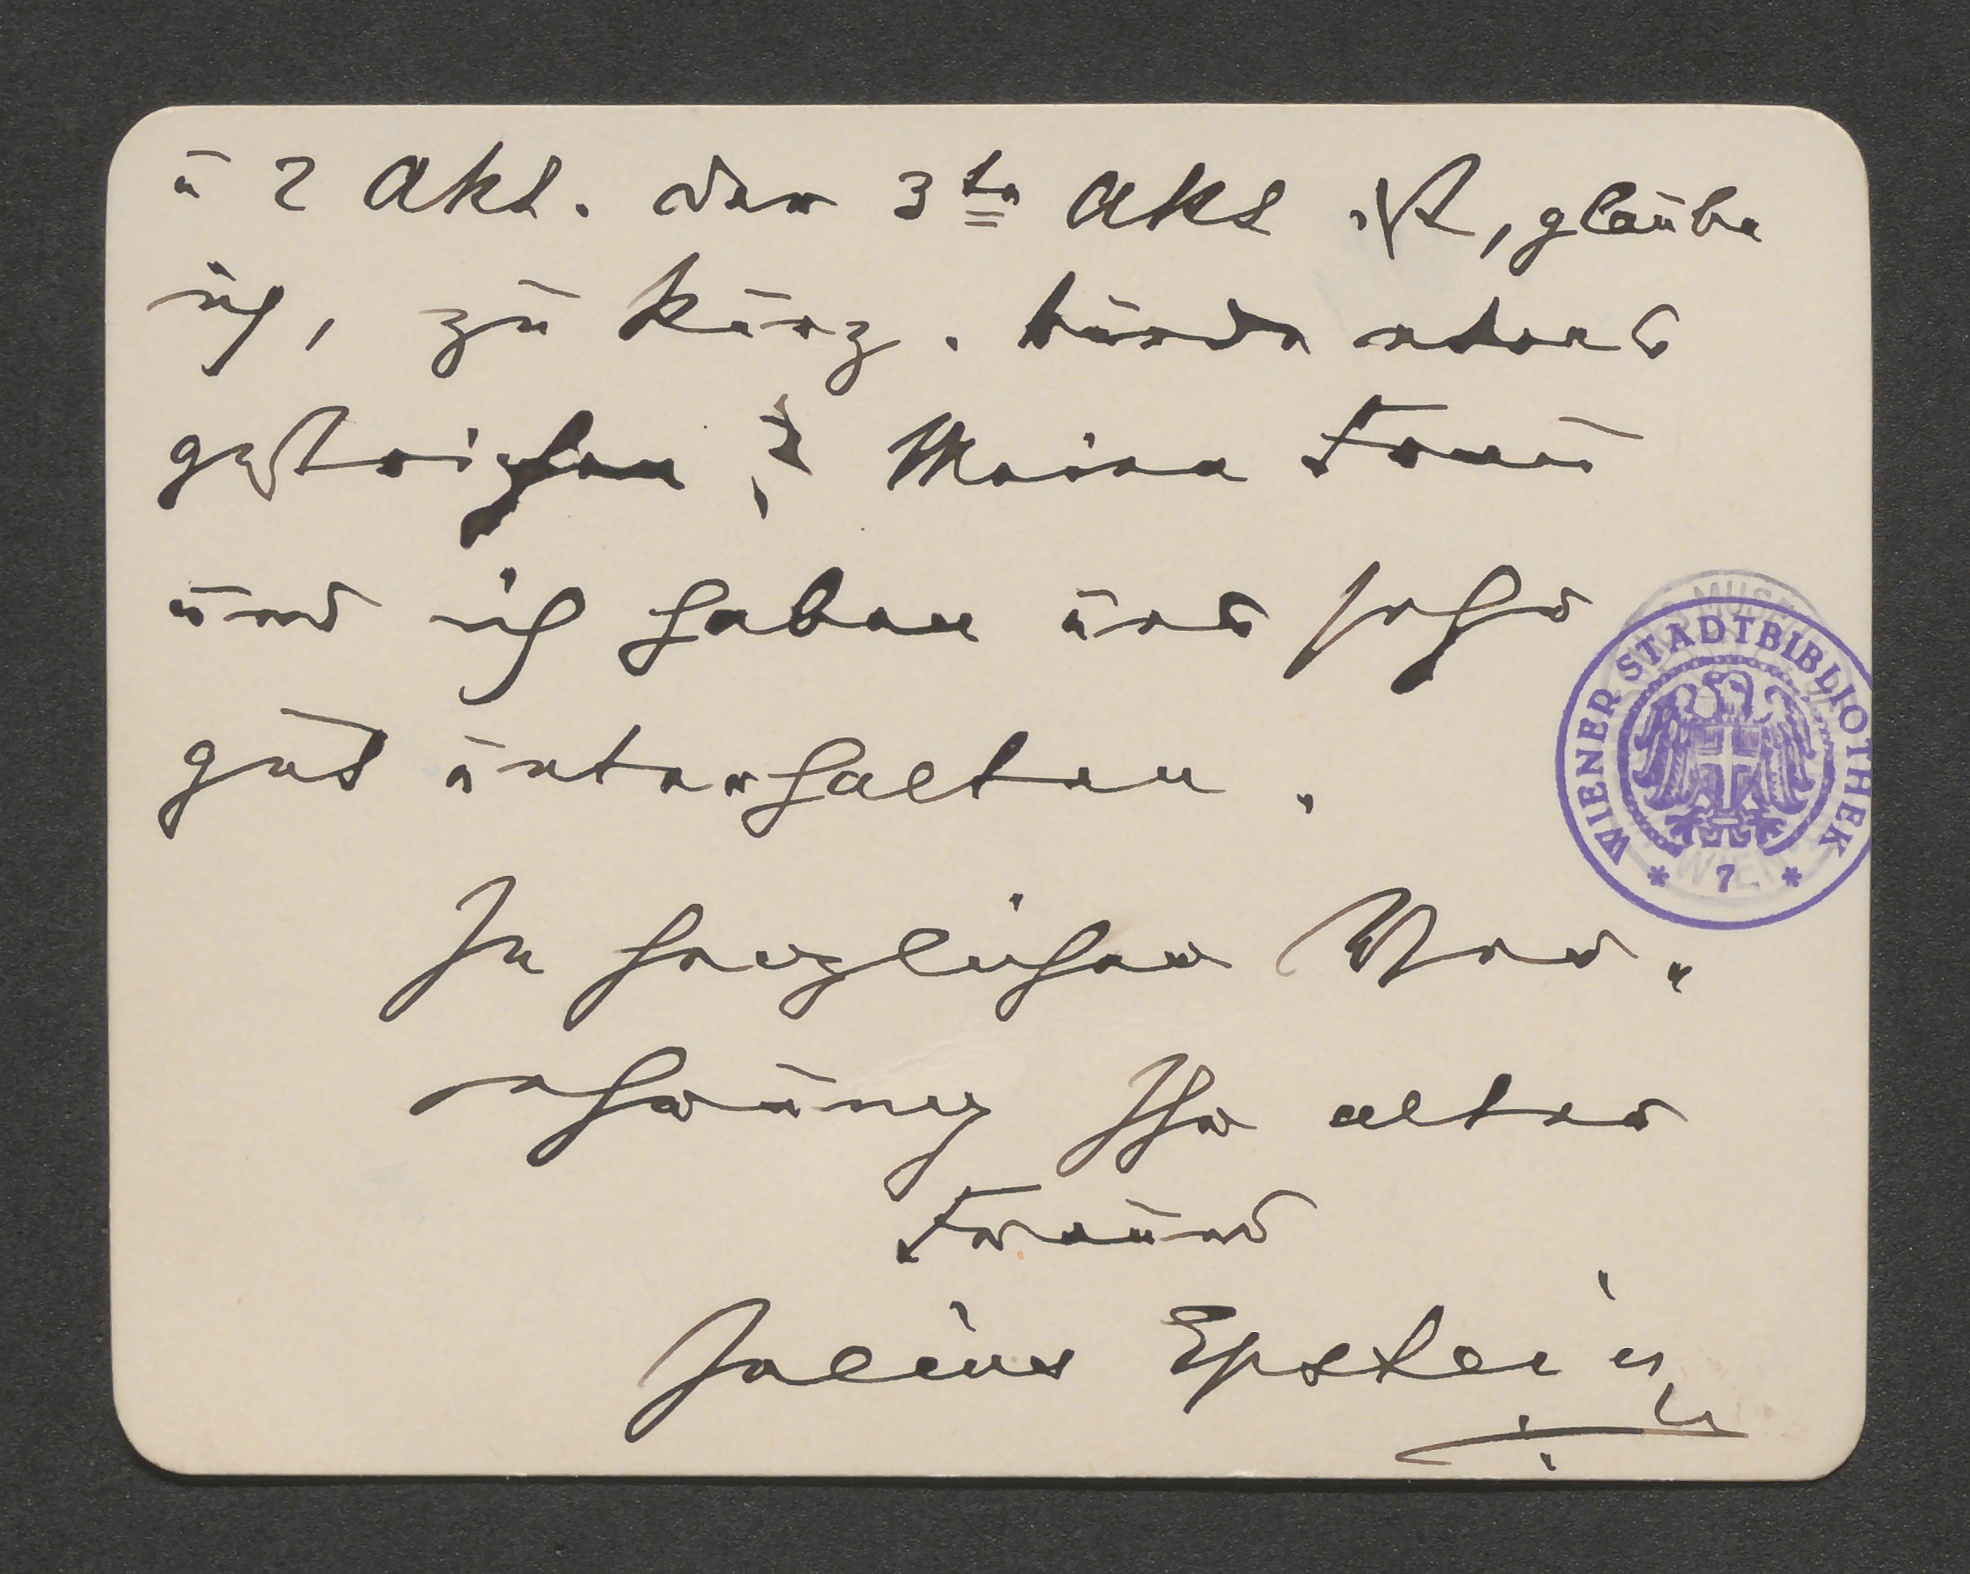 u 2 Akt. Der 3te Akt ist, glaube
ich, zu kurz. Wurde etwas
gestrichen? Meine Frau
und ich haben uns sehr
gut unterhalten.
In herzlicher Ver-
ehrung Ihr alter
Freund
Julius Epstein
WIENER STADTBIBLIOTHEK
* 7 *